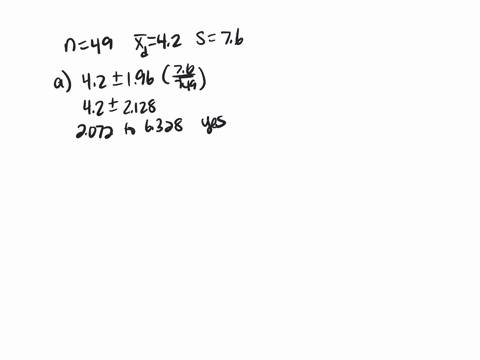 n=49 x̄d=4.2 S=7.6
a) 4.2 ± 1.96 (7.6/√49)
4.2 ± 2.128
2.072 to 6.328 yes